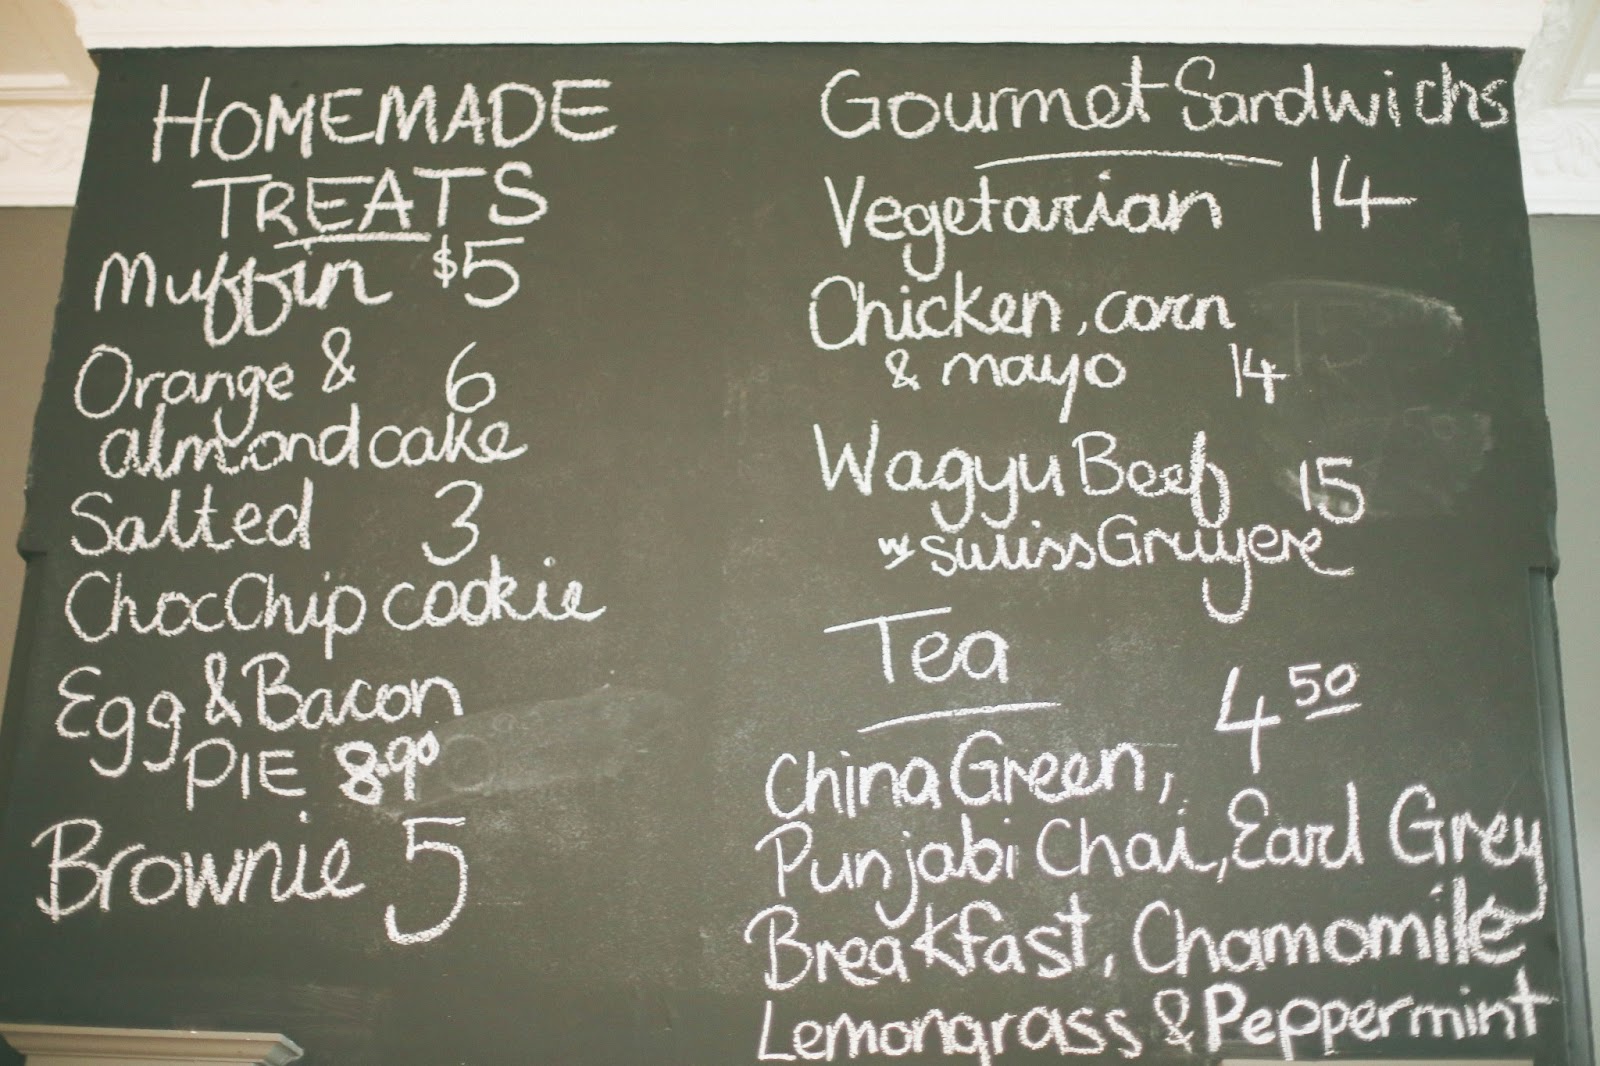 HOMEMADE
TREATS
Muffin $5
Orange & 6
almond cake
Salted 3
Choc Chip cookie
Egg & Bacon
PIE 8.90
Brownie 5
Gourmet Sandwichs
Vegetarian 14
Chicken, corn
& mayo 14
Wagyu Beef 15
w swiss Gruyere
Tea
4 50
China Green,
Punjabi Chai, Earl Grey
Breakfast, Chamomile
Lemongrass & Peppermint